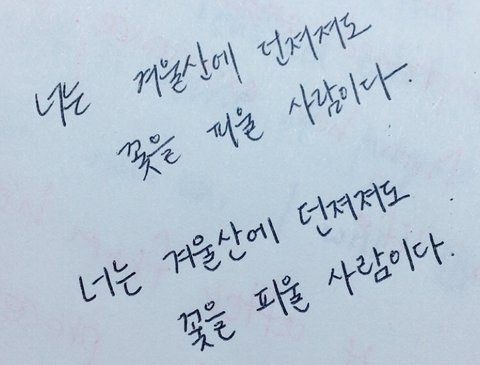 너는 겨울산에 던져져도
꽃을 피울 사람이다.
너는 겨울산에 던져져도
꽃을 피울 사람이다.